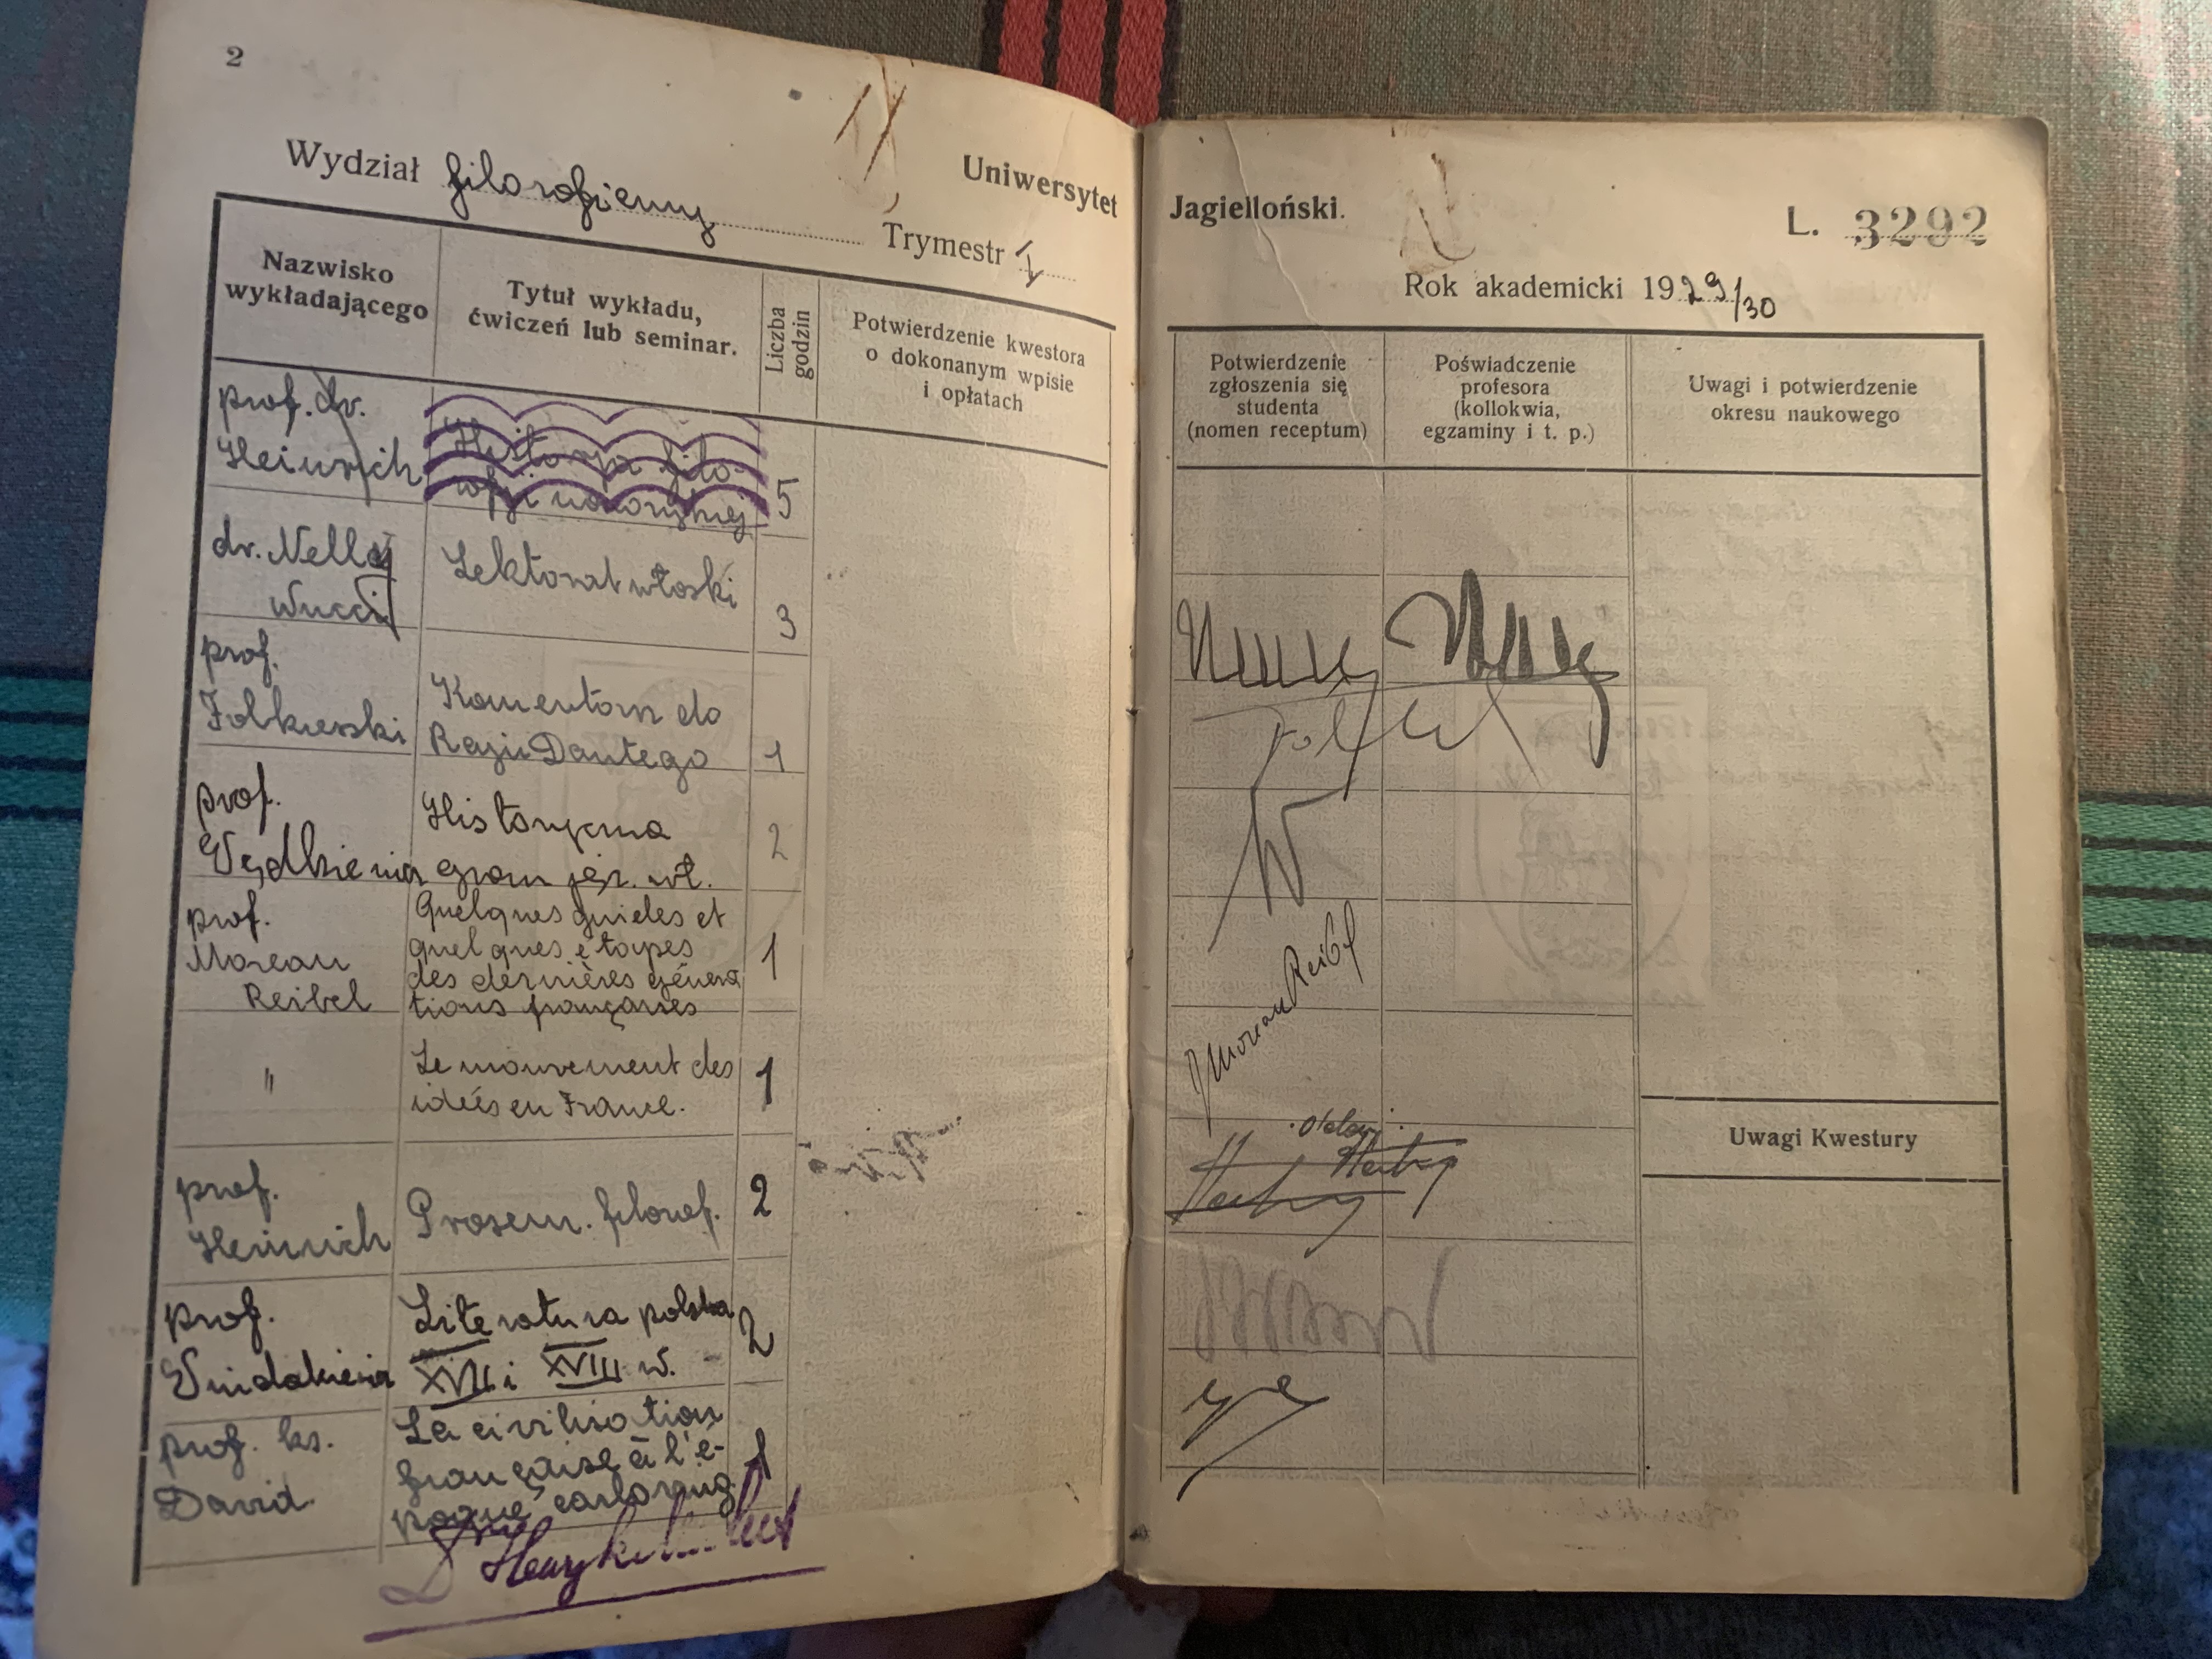 2
Wydział filozoficzny
Uniwersytet
Trymestr I
Nazwisko
wykładającego
Tytuł wykładu,
ćwiczeń lub seminar.
Liczba
godzin
Potwierdzenie kwestora
o dokonanym wpisie
i opłatach
prof. dr.
Heinrich
Historja filo-
zofji nowożytnej
5
dr. Nelly
Nucci
Lektorat włoski
3
prof.
Folkierski
Komentarz do
Raju Dantego
1
prof.
Wędkiewicz
Historyczna
gram. jęz. wł.
2
prof.
Moreau
Reibel
Quelques guides et
quelques étapes
des dernières généra
tions françaises
1
"
Le mouvement des
idées en France.
1
prof.
Heinrich
Prosem. filozof.
2
prof.
Windakiewicz
Literatura polska
XVII i XVIII w.
2
prof. ks.
David
La civilisation
française à l'é-
poque carloving
1
Dr Henryk
Jagielloński.
L. 3292
Rok akademicki 1929/30
Potwierdzenie
zgłoszenia się
studenta
(nomen receptum)
Poświadczenie
profesora
(kollokwia,
egzaminy i t. p.)
Uwagi i potwierdzenie
okresu naukowego
Moreau Reibel
Uwagi Kwestury